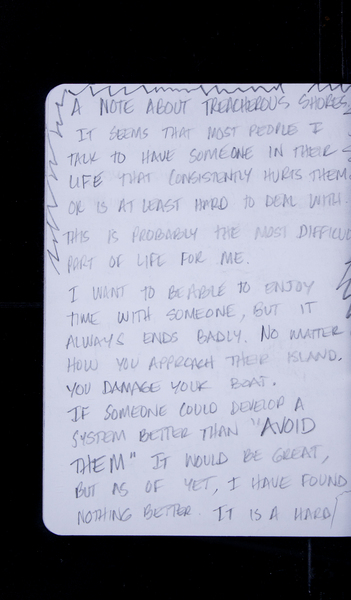 A NOTE ABOUT TREACHEROUS SHORES,
IT SEEMS THAT MOST PEOPLE I
TALK TO HAVE SOMEONE IN THEIR
LIFE THAT CONSISTENTLY HURTS THEM
OR IS AT LEAST HARD TO DEAL WITH.
THIS IS PROBABLY THE MOST DIFFICUL
PART OF LIFE FOR ME.
I WANT TO BE ABLE TO ENJOY
TIME WITH SOMEONE, BUT IT
ALWAYS ENDS BADLY. NO MATTER
HOW YOU APPROACH THEIR ISLAND,
YOU DAMAGE YOUR BOAT.
IF SOMEONE COULD DEVELOP A
SYSTEM BETTER THAN "AVOID
THEM" IT WOULD BE GREAT,
BUT AS OF YET, I HAVE FOUND
NOTHING BETTER. IT IS A HARD